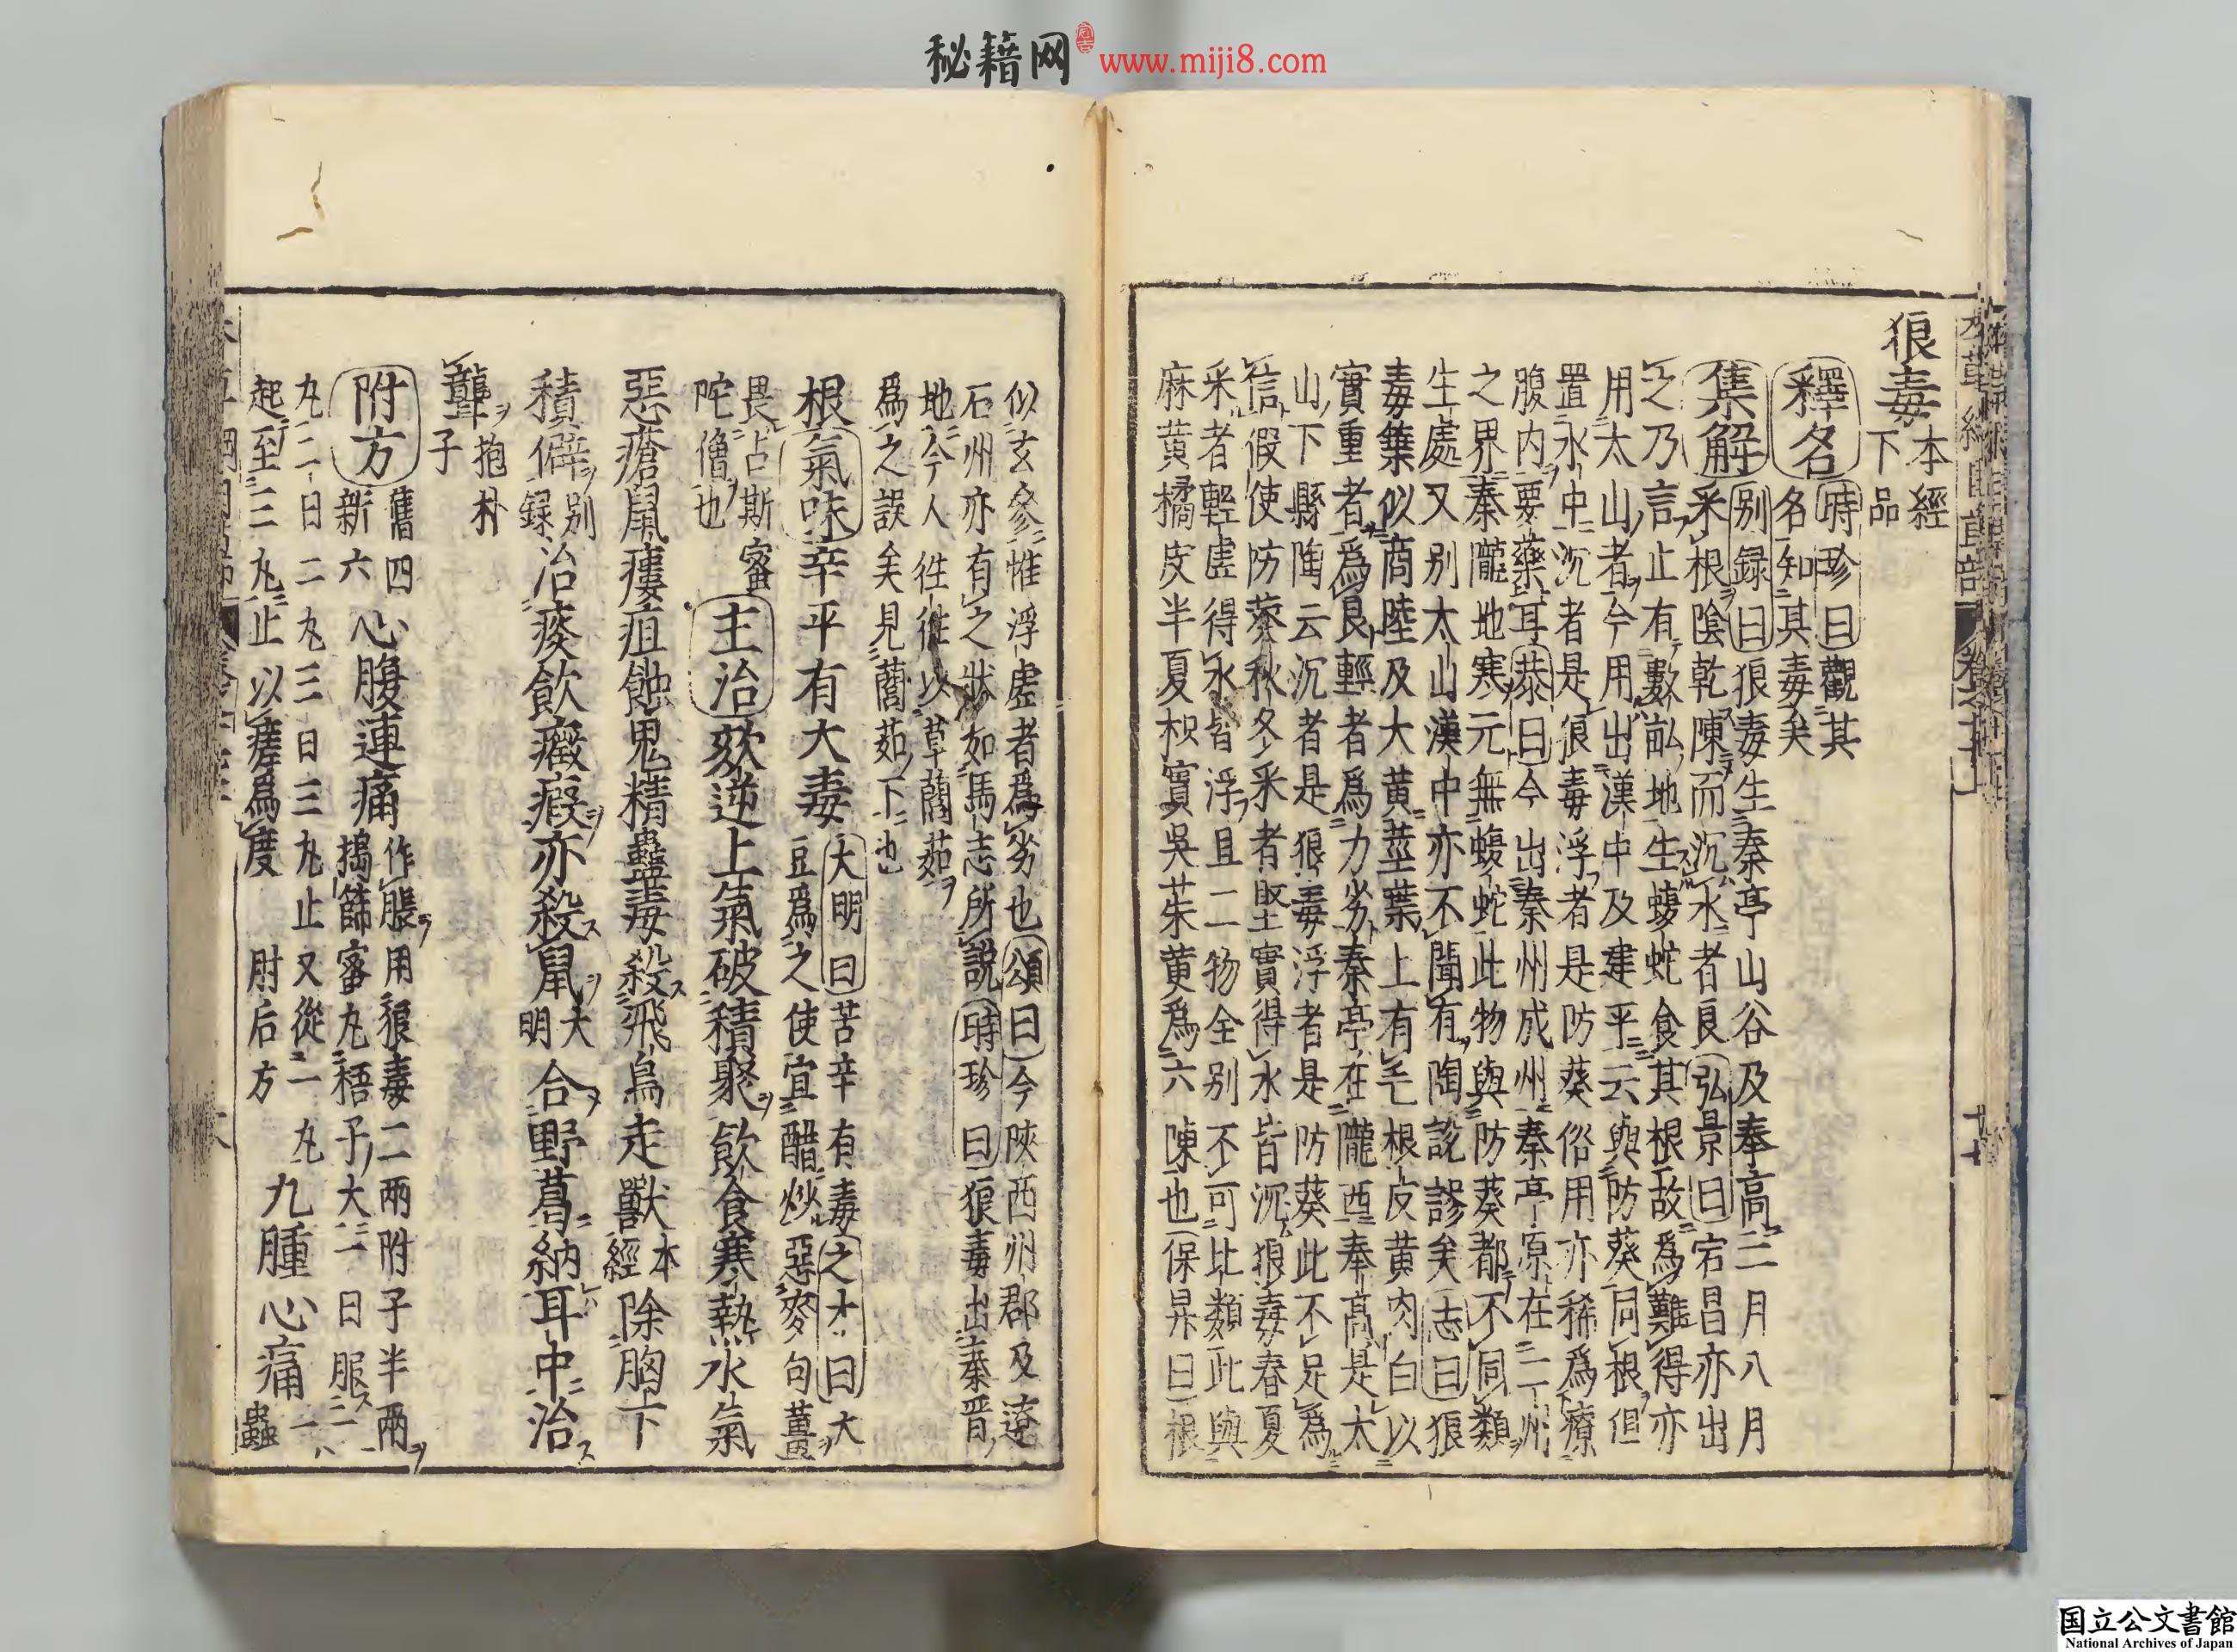 秘籍网 www.miji8.com
狼毒本經
下品
釋名時珍曰觀其
名知其毒矣
集解别録曰狼毒生秦亭山谷及奉高二月八月
采根陰乾陳而沉水者良弘景曰宕昌亦出
之乃言止有數畝地生蝮蛇食其根故爲難得亦
用太山者今用出漢中及建平云與防葵同根但
置水中沉者是狼毒浮者是防葵俗用亦稀爲療
腹内要藥耳恭曰今出秦州成州秦亭原在二州
之界秦隴地寒元無蝮蛇此物與防葵都不同類
生處又别太山漢中亦不聞有陶説謬矣志曰狼
毒葉似商陸及大黄莖葉上有毛根皮黄肉白以
實重者爲良輕者爲力劣秦亭在隴西奉高是太
山下縣陶云沉者是狼毒浮者是防葵此不足爲
信假使防葵秋冬采者堅實得水皆沉狼毒春夏
采者輕虚得水皆浮且二物全别不可比類此與
麻黄橘皮半夏枳實吳茱萸爲六陳也保昇曰根
似玄參惟浮虚者爲劣也頌曰今陜西州郡及遼
石州亦有之狀如馬志所説時珍曰狼毒出秦晋
地今人往往以草䕡茹
爲之誤矣見䕡茹下也
根氣味辛平有大毒大明曰苦辛有毒之才曰大
豆爲之使宜醋炒惡麥句薑
畏占斯密
陀僧也主治欬逆上氣破積聚飲食寒熱水氣
惡瘡鼠瘻疽蝕鬼精蠱毒殺飛鳥走獸本經除胸下
積僻别録治痰飲癥瘕亦殺鼠大明合野葛納耳中治
聾抱朴子
附方舊四新六心腹連痛作脹用狼毒二兩附子半兩
搗篩蜜丸梧子大一日服一
丸二日二丸三日三丸止又從一丸
起至三丸止以瘥爲度肘后方九腫心痛一蟲
国立公文書館
National Archives of Japan